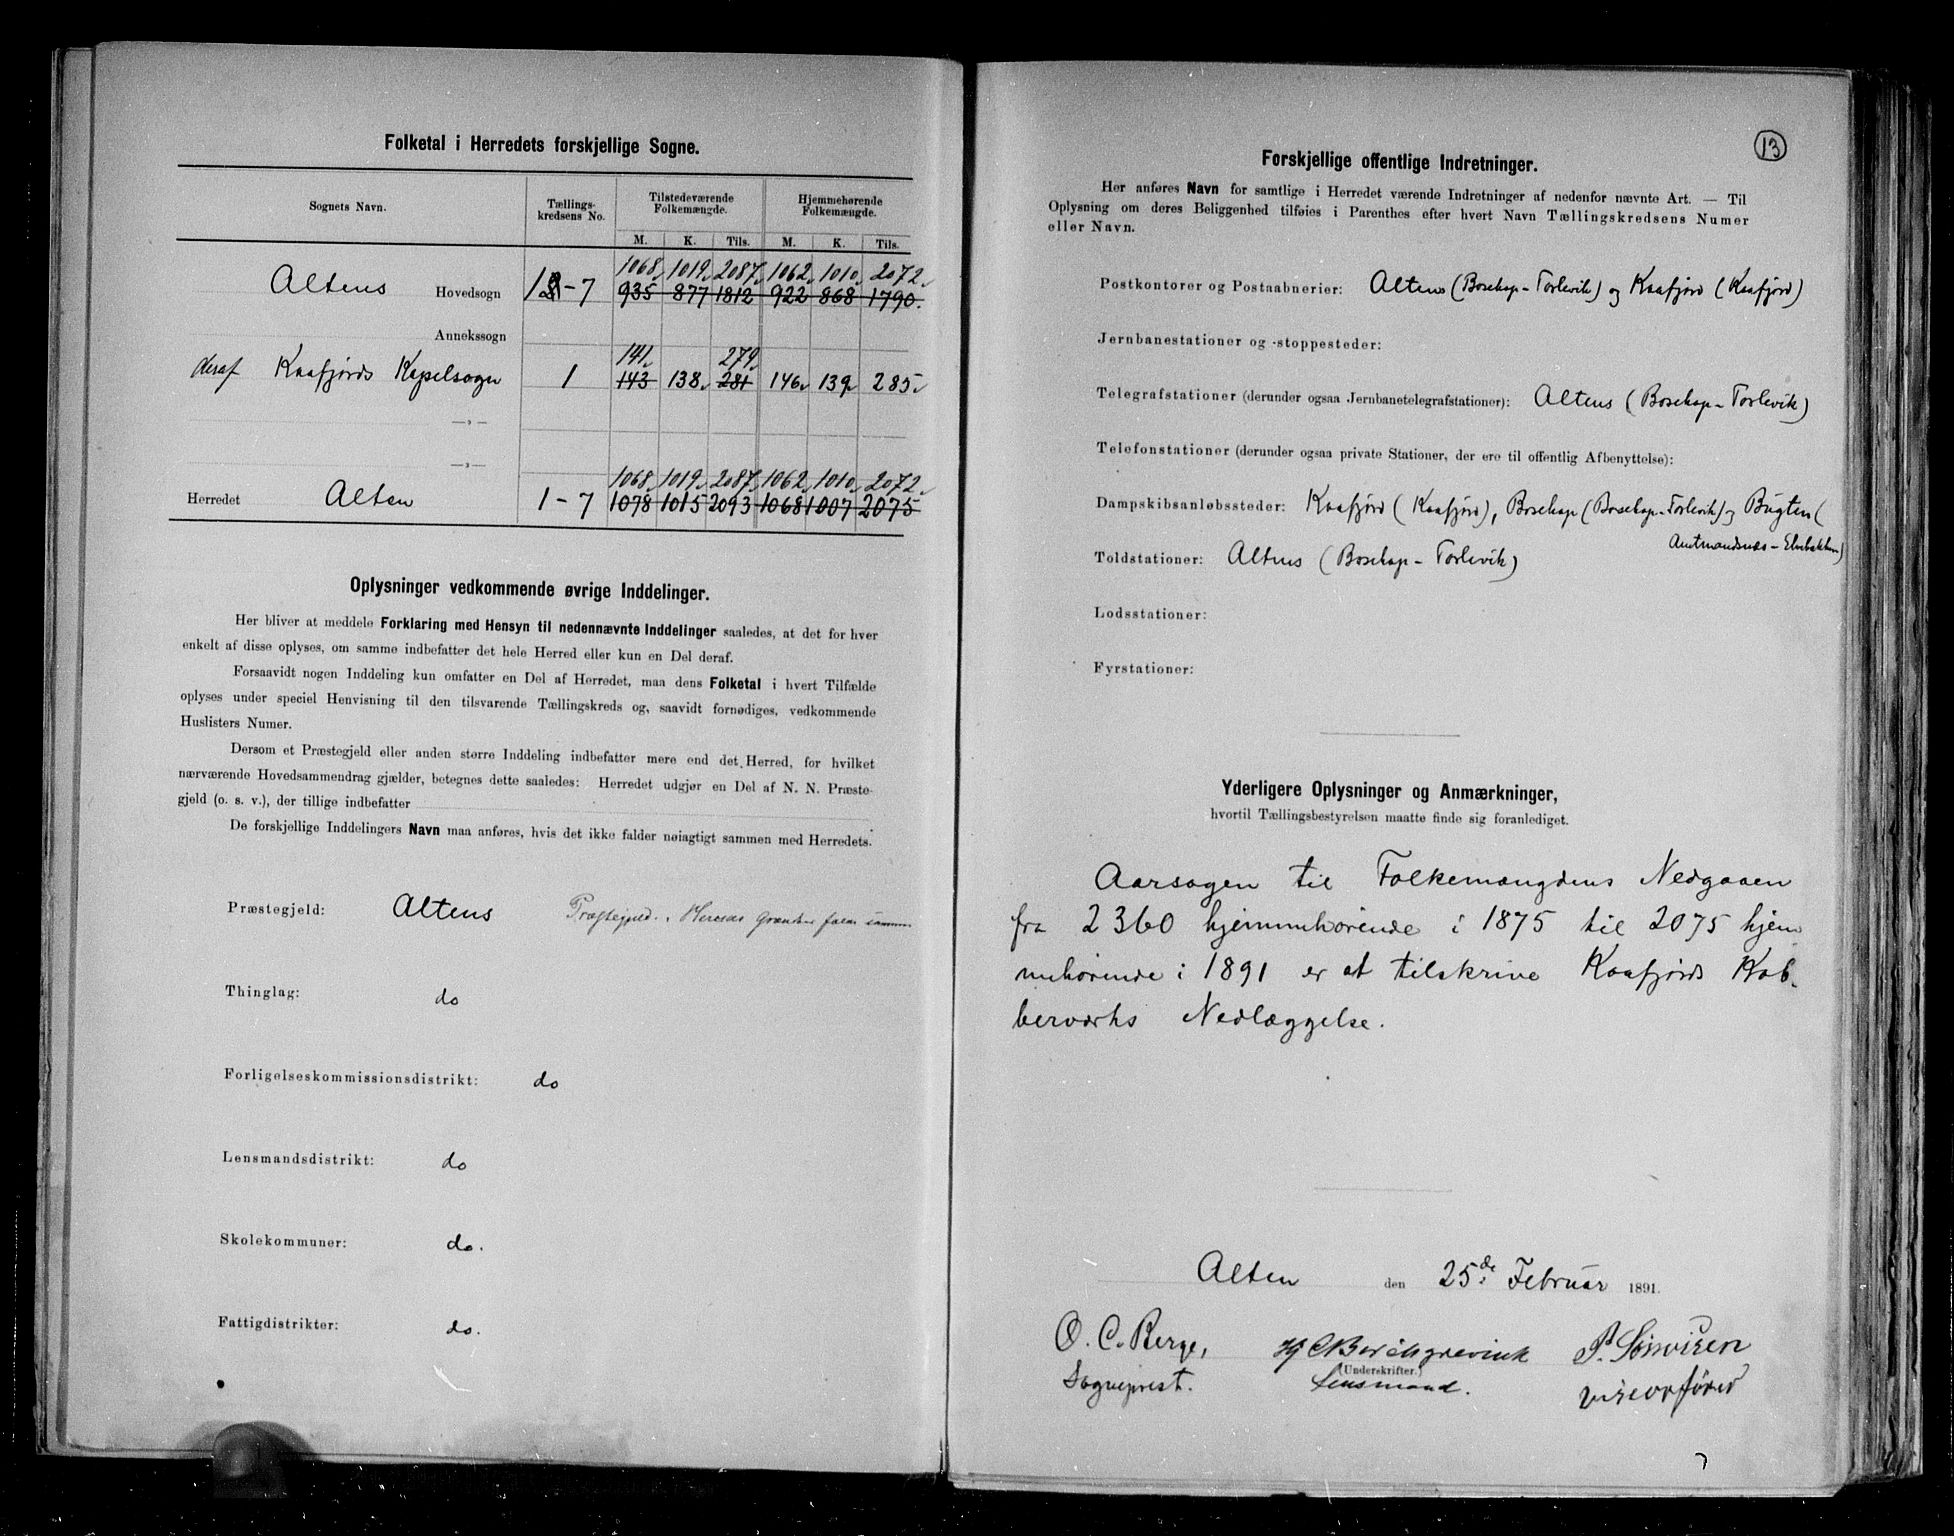 Folketal i Herredets forskjellige Sogne.
Sognets Navn.
Tællings-
kredsens No.
Tilstedeværende
Folkemængde.
Hjemmehørende
Folkemængde.
M. K. Tils. M. K. Tils.
1068 1019 2087 1062 1010 2072
Altens Hovedsogn 1-7 935 877 1812 922 868 1790.
Annekssogn
141 279
deraf Kaafjords Kapelsogn 1 143 138 281 146 139 285
—„—
—„—
1068 1019 2087 1062 1010 2072
Herredet Alten 1-7 1078 1015 2093 1068 1007 2075
Oplysninger vedkommende øvrige Inddelinger.
Her bliver at meddele Forklaring med Hensyn til nedennævnte Inddelinger saaledes, at det for hver
enkelt af disse oplyses, om samme indbefatter det hele Herred eller kun en Del deraf.
Forsaavidt nogen Inddeling kun omfatter en Del af Herredet, maa dens Folketal i hvert Tilfælde
oplyses under speciel Henvisning til den tilsvarende Tællingskreds og, saavidt fornødiges, vedkommende
Huslisters Numer.
Dersom et Præstegjeld eller anden større Inddeling indbefatter mere end det Herred, for hvilket
nærværende Hovedsammendrag gjælder, betegnes dette saaledes: Herredet udgjør en Del af N. N. Præste-
gjeld (o. s. v.), der tillige indbefatter
De forskjellige Inddelingers Navn maa anføres, hvis det ikke falder nøiagtigt sammen med Herredets.
Præstegjeld: Altens Præstegjeld. Herreds Grændser falder sammen
Thinglag: do
Forligelseskommissionsdistrikt: do
Lensmandsdistrikt: do
Skolekommuner: do.
Fattigdistrikter: do.
13
Forskjellige offentlige Indretninger.
Her anføres Navn for samtlige i Herredet værende Indretninger af nedenfor nævnte Art. — Til
Oplysning om deres Beliggenhed tilføies i Parenthes efter hvert Navn Tællingskredsens Numer
eller Navn.
Postkontorer og Postaabnerier: Altens (Bosekop-Torlevik) og Kaafjord (Kaafjord)
Jernbanestationer og -stoppesteder:
Telegrafstationer (derunder ogsaa Jernbanetelegrafstationer): Altens (Bosekop-Torlevik)
Telefonstationer (derunder ogsaa private Stationer, der ere til offentlig Afbenyttelse):
Dampskibsanløbssteder: Kaafjord (Kaafjord), Bosekop (Bosekop-Torlevik) og Bugten (
Amtmandsnæs-Elvebakken)
Toldstationer: Altens (Bosekop-Torlevik)
Lodsstationer:
Fyrstationer:
Yderligere Oplysninger og Anmærkninger,
hvortil Tællingsbestyrelsen maatte finde sig foranlediget.
Aarsagen til Folkemængdens Nedgaaen
fra 2360 hjemmehørende i 1875 til 2075 hjem
mehørende i 1891 er at tilskrive Kaafjords Kob-
berværks Nedlæggelse.
Alten den 25de Februar 1891.
O. C. Berge, Hj C Borchgrevink P.
(Underskrifter.)
Sogneprest. Lensmand. viseordfører